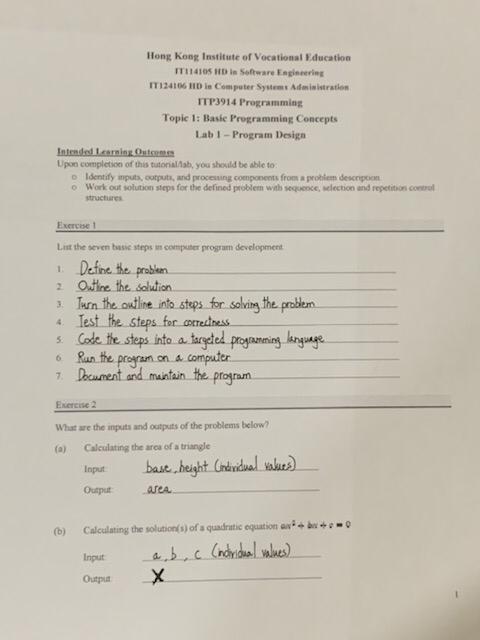 Hong Kong Institute of Vocational Education
IT114105 HD in Software Engineering
IT124106 HD in Computer Systems Administration
ITP3914 Programming
Topic 1: Basic Programming Concepts
Lab 1 – Program Design
Intended Learning Outcomes
Upon completion of this tutorial/lab, you should be able to:
o Identify inputs, outputs, and processing components from a problem description.
o Work out solution steps for the defined problem with sequence, selection and repetition control
structures.
Exercise 1
List the seven basic steps in computer program development.
1. Define the problem
2. Outline the solution
3. Turn the outline into steps for solving the problem
4. Test the steps for correctness
5. Code the steps into a targeted programming language
6. Run the program on a computer
7. Document and maintain the program
Exercise 2
What are the inputs and outputs of the problems below?
(a) Calculating the area of a triangle
Input: base, height (individual values)
Output: area
(b) Calculating the solution(s) of a quadratic equation ax² + bx + c = 0
Input: a, b, c (individual values)
Output: X
1